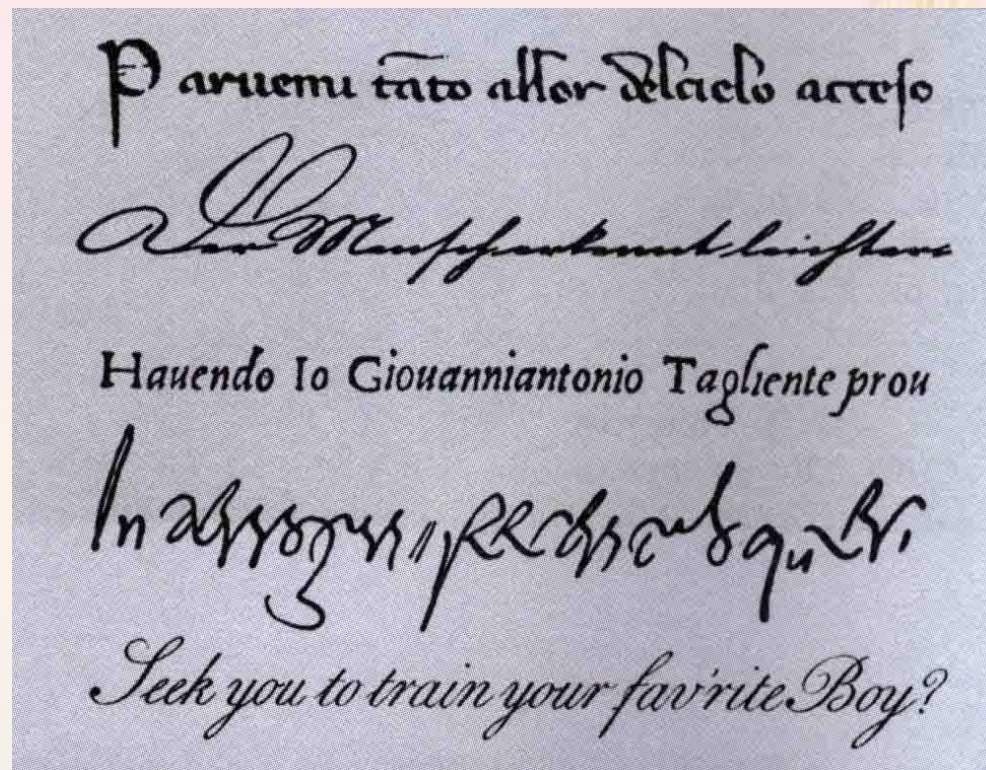 Paruemi tāto allor delcielo acceso
Der Mensch erkennt leichter
Hauendo Io Giouanniantonio Tagliente prou
In
Seek you to train your fav'rite Boy?